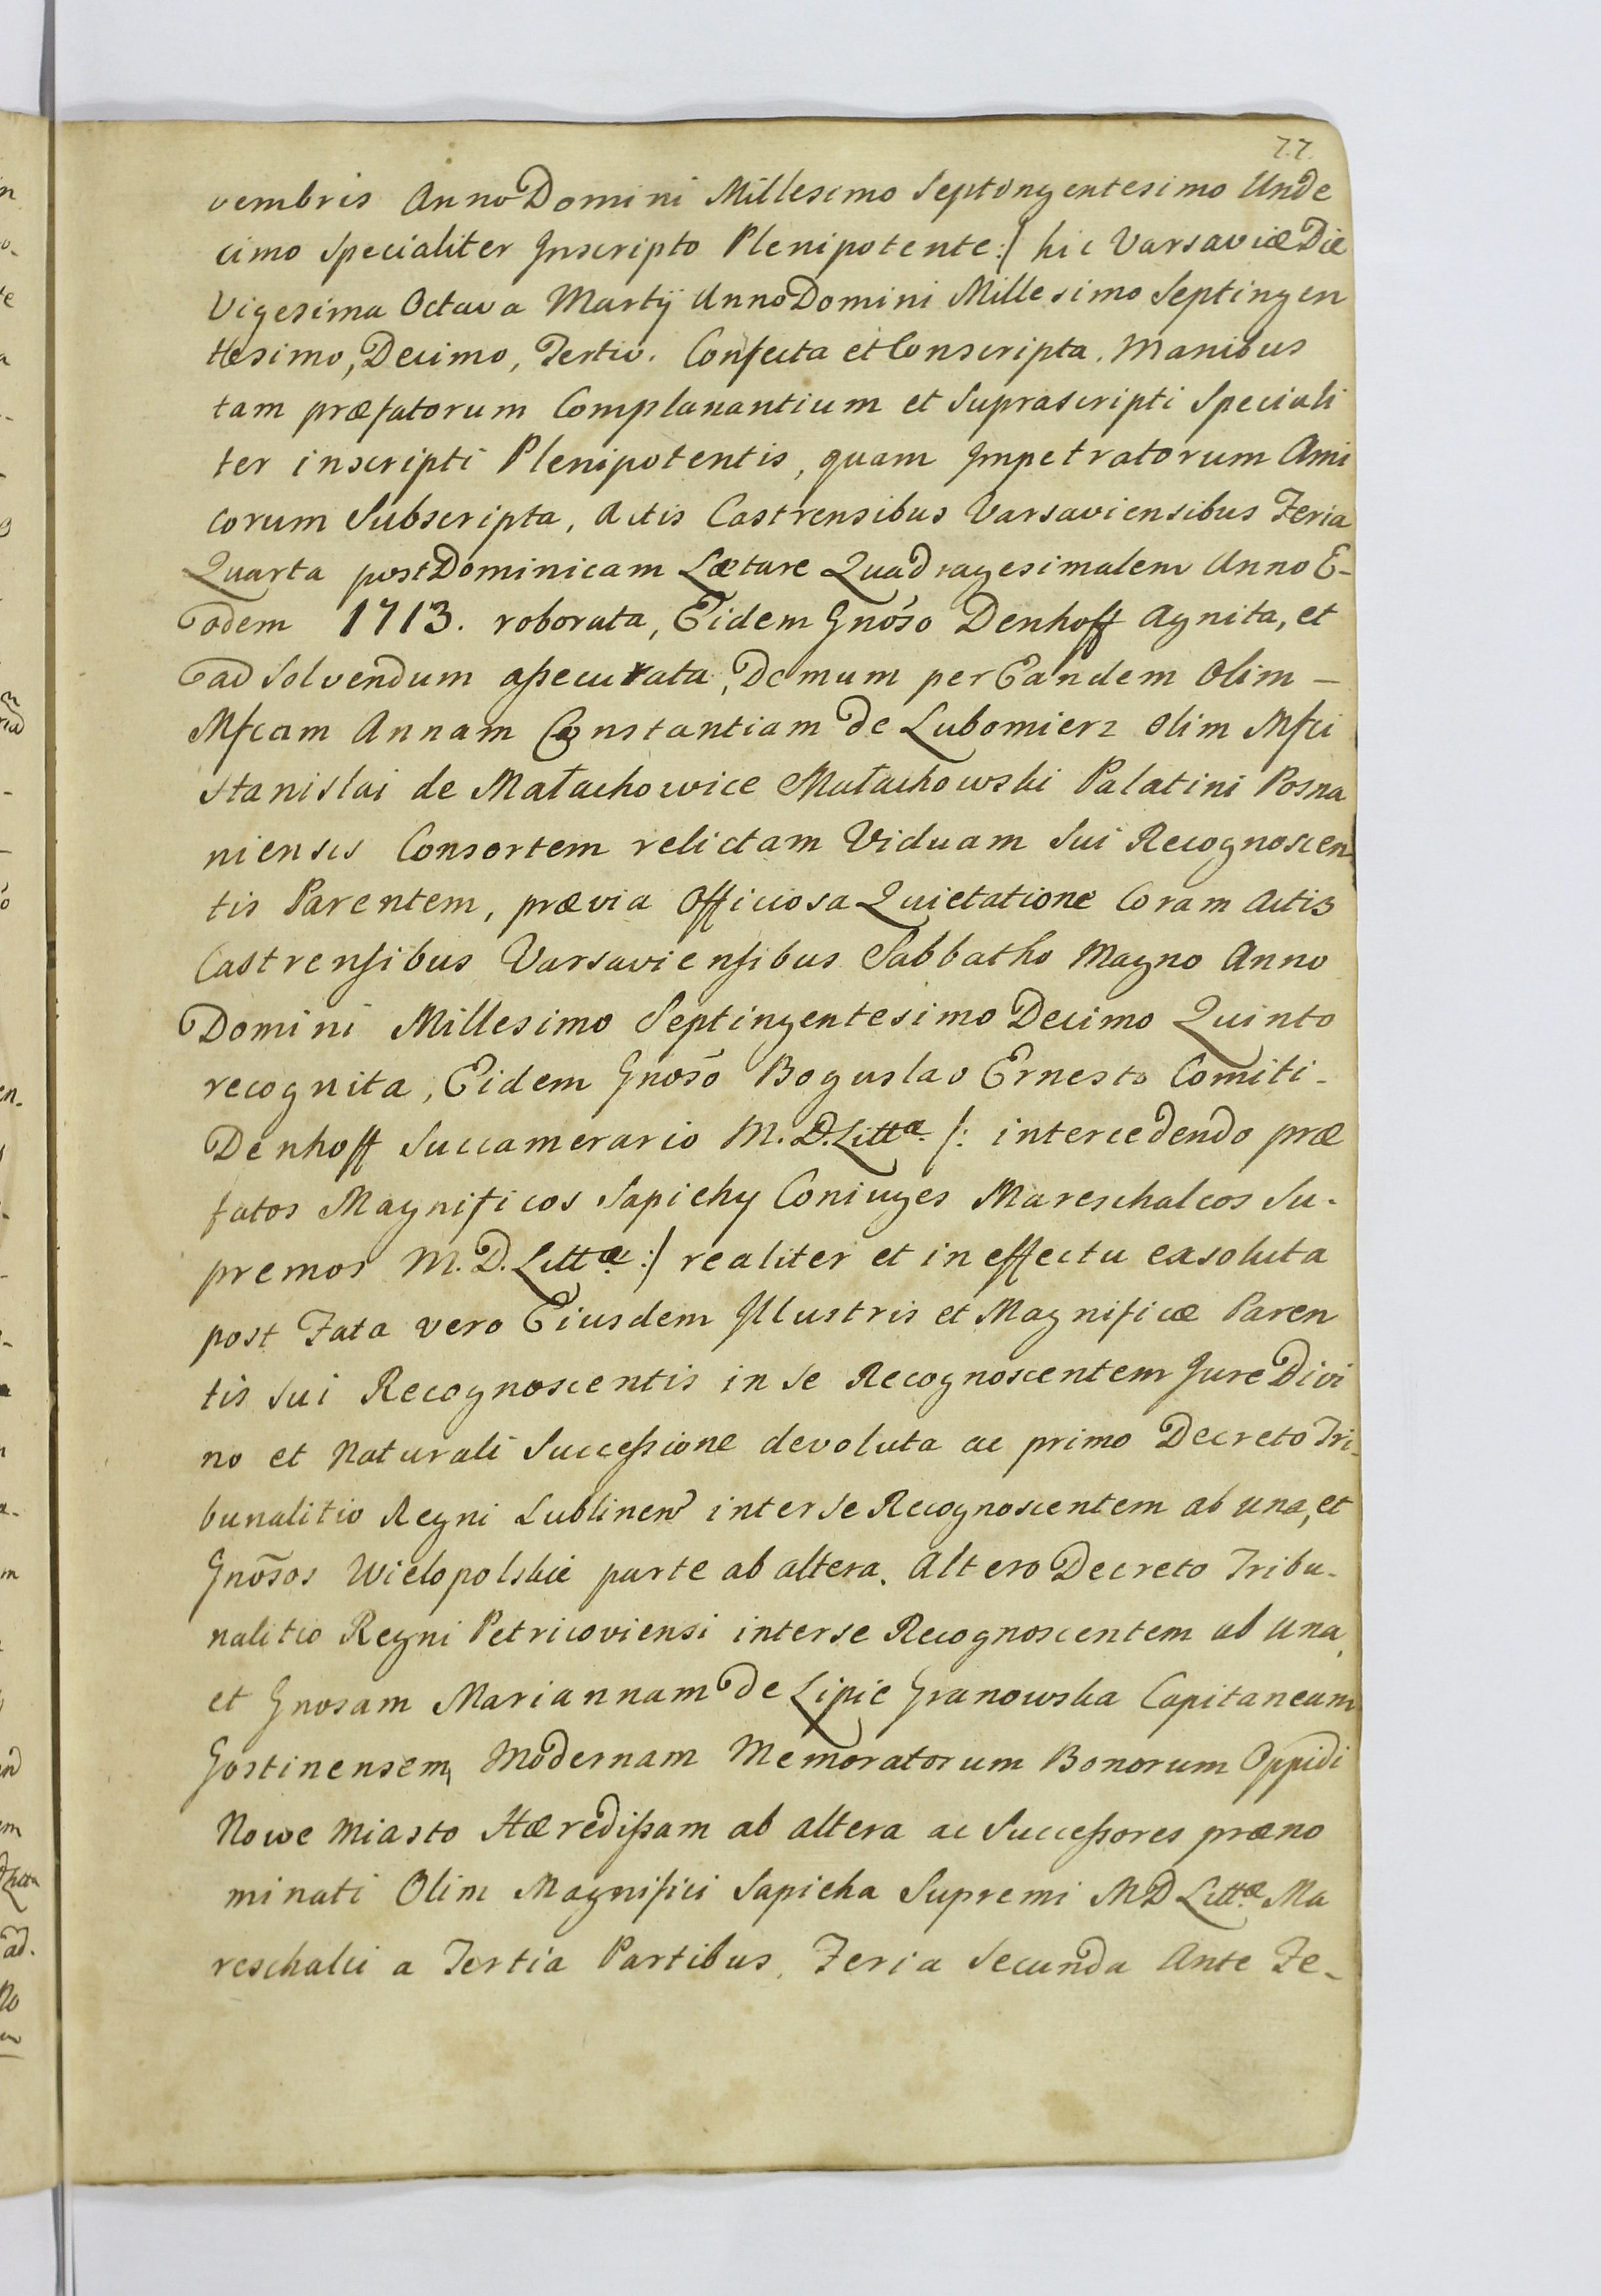 77.
vembris Anno Domini Millesimo Septingentesimo Unde
cimo Specialiter Inscripto Plenipotente :/ hic Varsaviæ Die
Vigesima Octava Martij Anno Domini Millesimo Septingen
tesimo, Decimo, Tertio. Confecta et Conscripta. Manibus
tam præfatorum Complanantium et Suprascripti Speciali
ter inscripti Plenipotentis, quam Impetratorum Ami
corum Subscripta, Actis Castrensibus Varsaviensibus Feria
Quarta post Dominicam Lætare Quadragesimalem Anno E-
odem 1713. roborata, Eidem Gnóso Denhoff Agnita, et
ad Solvendum aßecurata, Demum per Eandem Olim –
Mfcam Annam Constantiam de Lubomierz olim Mfci
Stanislai de Małachowice Małachowski Palatini Posna
niensis Consortem relictam Viduam Sui Recognoscen
tis Parentem, prævia Officiosa Quietatione Coram Actis
Castrensibus Varsaviensibus Sabbatho Magno Anno
Domini Millesimo Septingentesimo Decimo Quinto
recognita, Eidem Gnosõ Boguslao Ernesto Comiti-
Denhoff Succamerario M. D. Littæ. /: intercedendo præ
fatos Magnificos Sapiehy Coniuges Mareschalcos Su-
premos M. D. Littæ :/ realiter et in effectu exsoluta
post Fata vero Eiusdem Illustris et Magnificæ Paren
tis Sui Recognoscentis in Se Recognoscentem Jure Divi
no et Naturali Succeßione devoluta ac primo Decreto Tri-
bunalitio Regni Lublinen inter Se Recognoscentem ab una, et
Gnõsos Wielopolskie parte ab altera. Altero Decreto Tribu-
nalitio Regni Petricoviensi inter se Recognoscentem ab Una,
et Gnosam Mariannam de Lipie Granowska Capitaneam
Gostinensem, Modernam Memoratorum Bonorum Oppidi
Nowe Miasto Hæredißam ab altera ac Succeßores præno
minati Olim Magnifici Sapieha Supremi M D Littæ Ma
reschalci a Tertia Partibus, Feria Secunda Ante Fe-